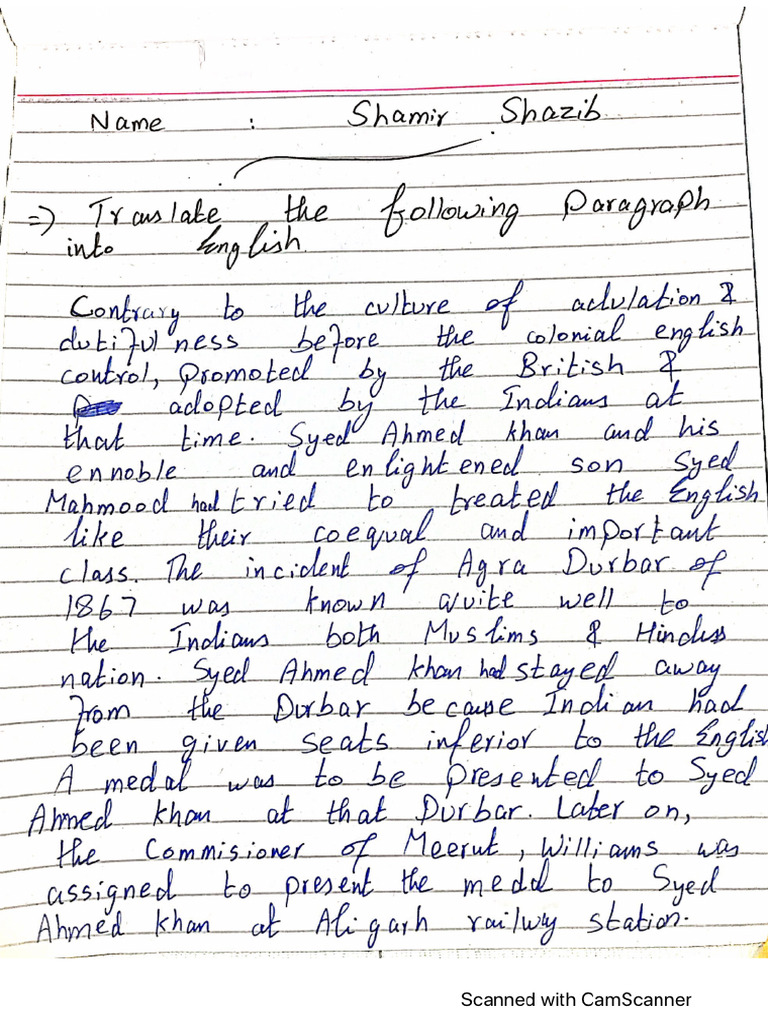 Name : Shamir Shazib
=> Translate the following Paragraph
into English.
Contrary to the culture of adulation &
dutifulness before the colonial english
control, promoted by the British &
adopted by the Indians at
that time. Syed Ahmed khan and his
ennoble and enlightened son Syed
Mahmood had tried to treated the English
like their coequal and important
class. The incident of Agra Durbar of
1867 was known quite well to
the Indians both Muslims & Hindus
nation. Syed Ahmed khan had stayed away
from the Durbar because Indian had
been given seats inferior to the English
A medal was to be presented to Syed
Ahmed khan at that Durbar. Later on,
the Commisioner of Meerut, Williams was
assigned to present the medal to Syed
Ahmed khan at Aligarh railway station.
Scanned with CamScanner